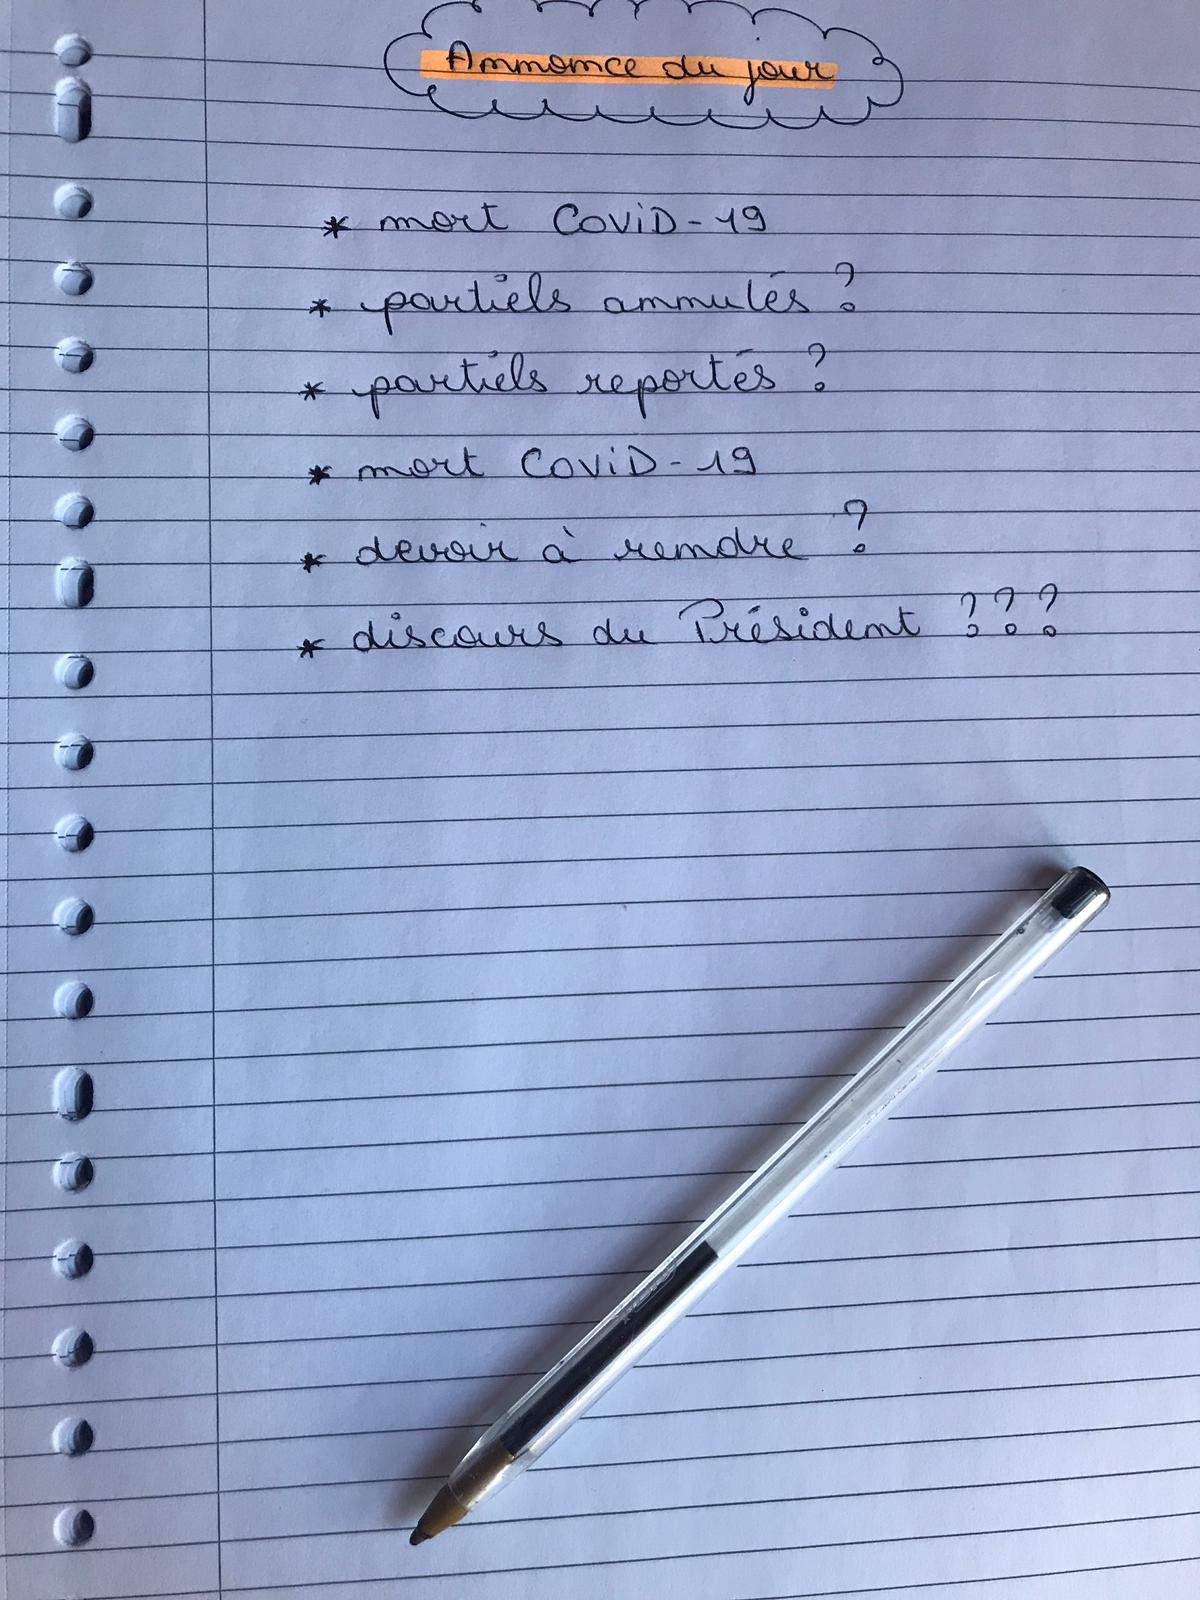 Annonce du jour
* mort COViD-19
* partiels annulés ?
* partiels reportés ?
* mort COViD-19
* devoir à rendre ?
* discours du Président ???